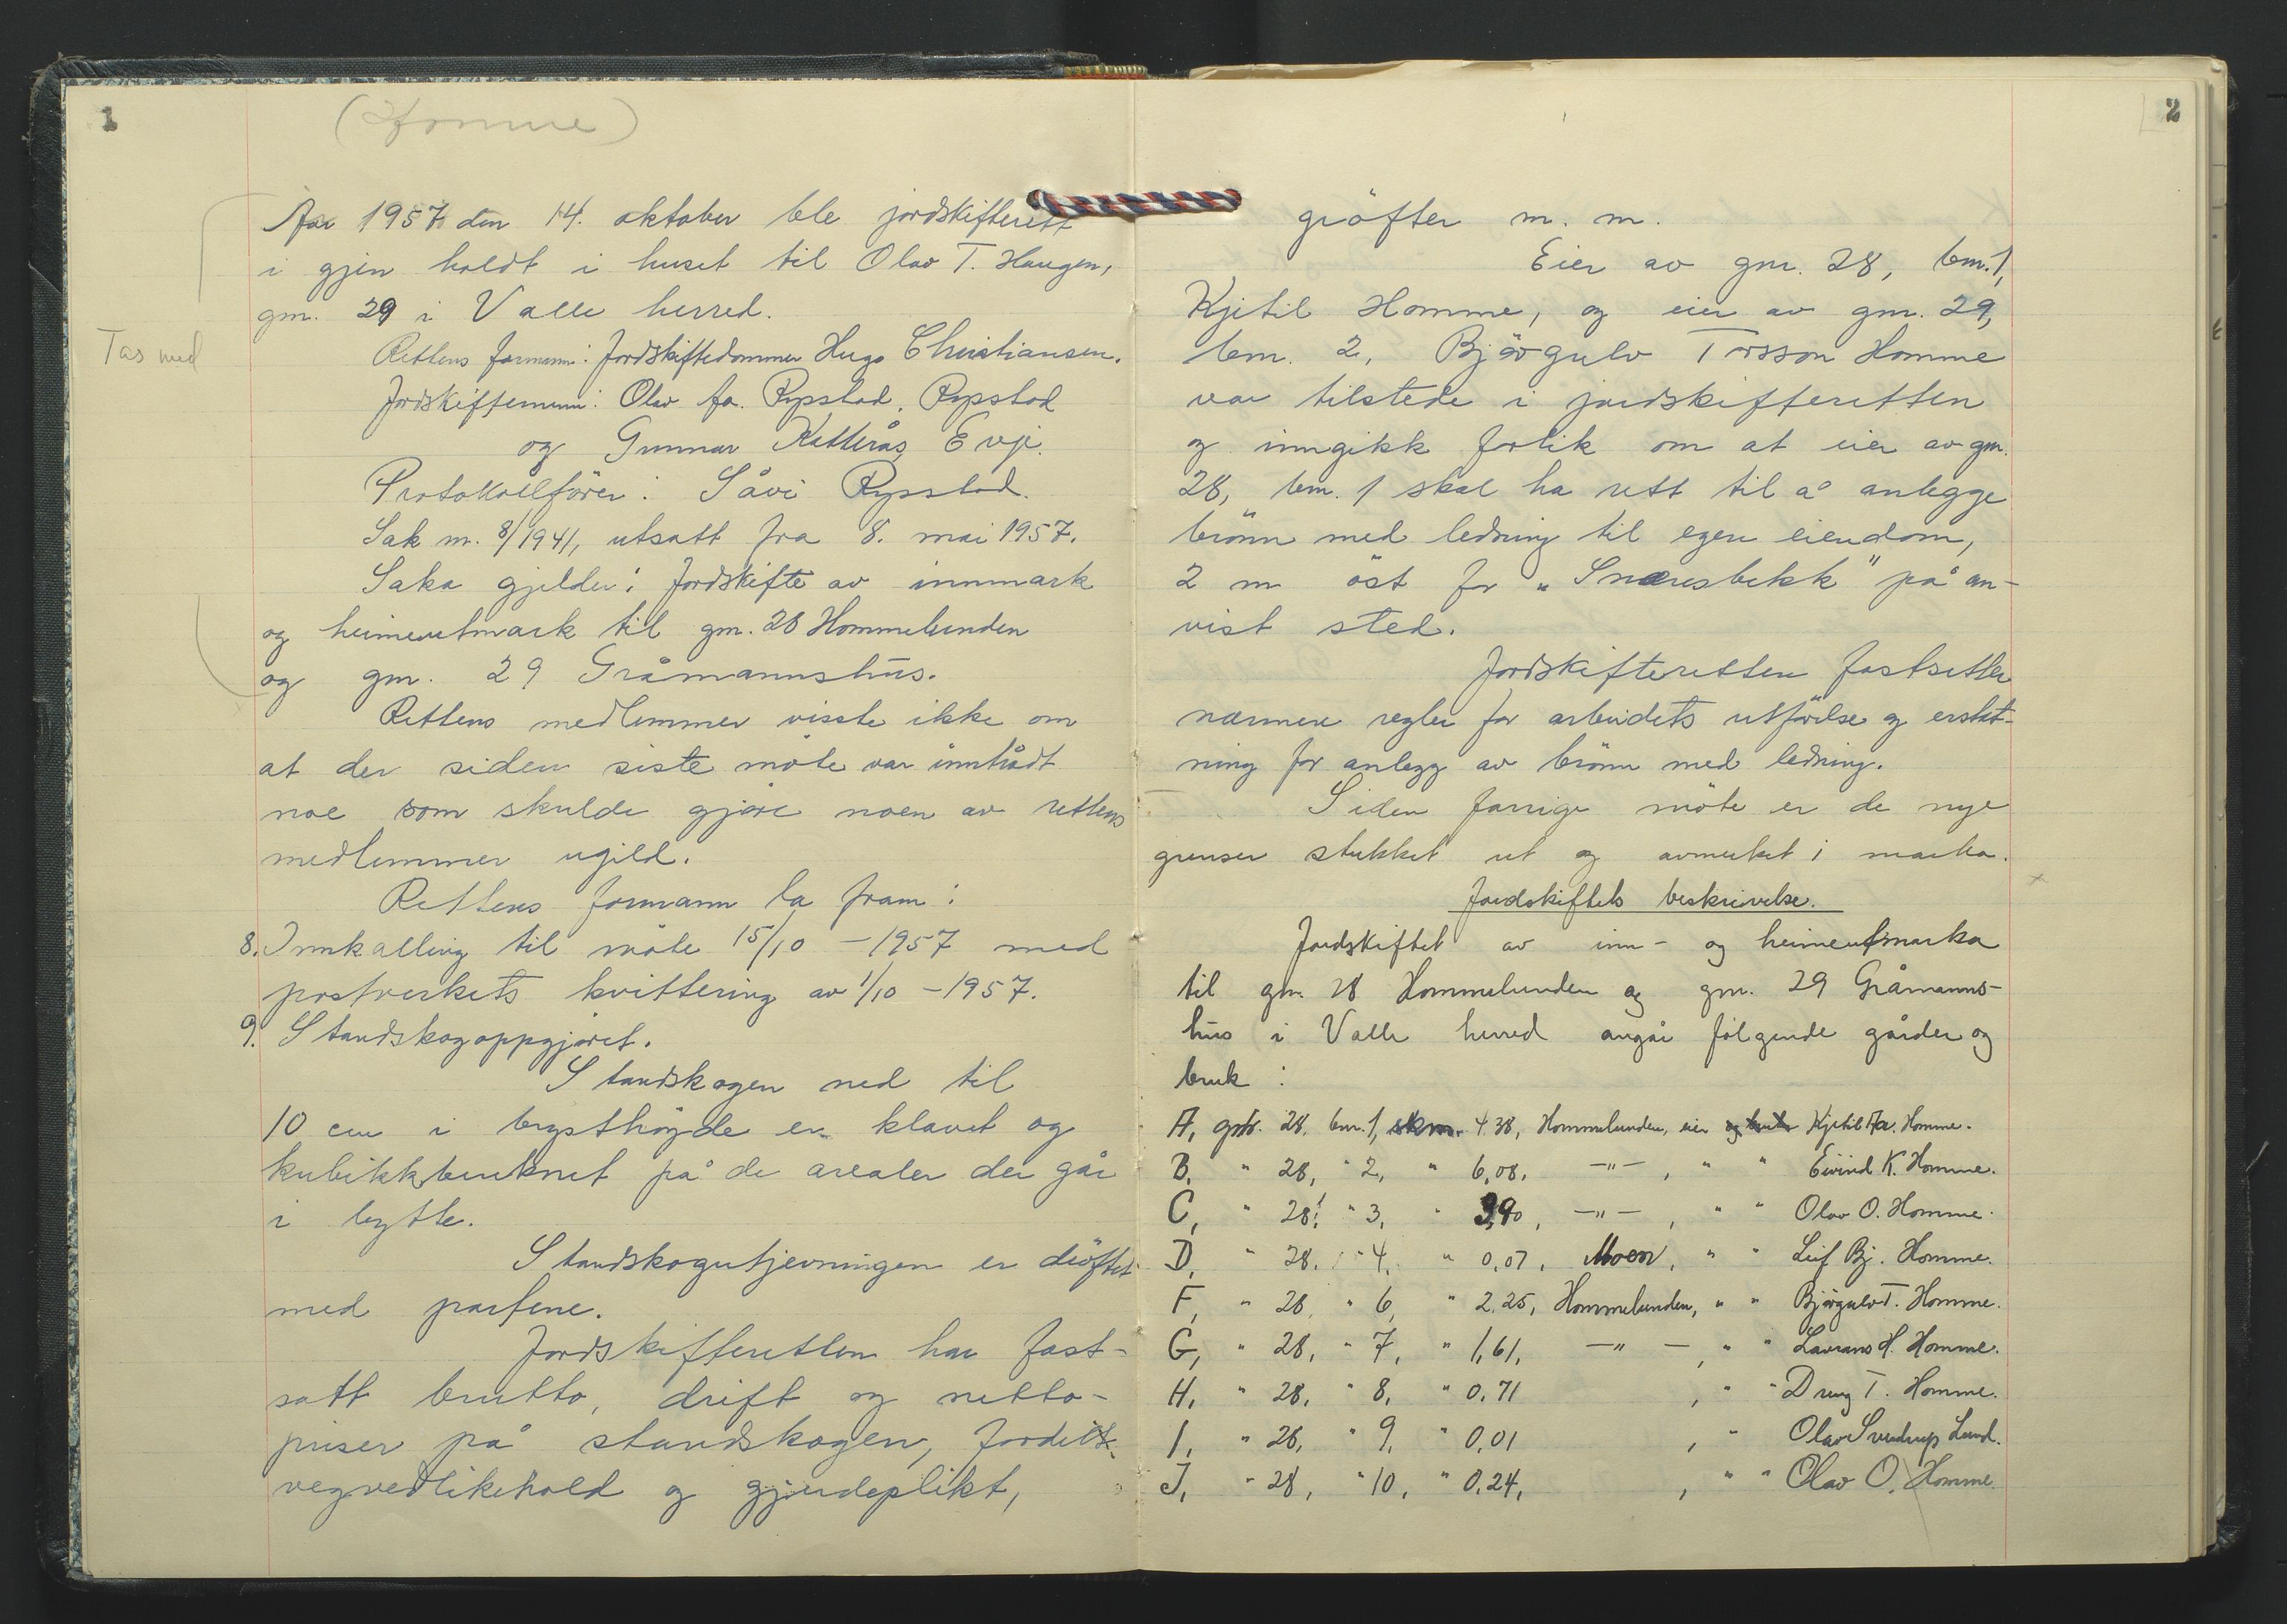 1
(Homme)
Aar 1957 den 14. oktober ble jordskifterett
i gjen holdt i huset til Olav T. Haugen,
gnr. 29 i Valle herred.
Tas med
Rettens formann: Jordskiftedommer Hugo Christiansen.
Jordskiftemenn: Olav Aa. Rysstad, Rysstad
og Gunnar Katterås, Evje.
Protokollförer: Såvi Rysstad.
Sak nr. 8/1941, utsatt fra 8. mai 1957.
Saka gjelder: Jordskifte av innmark
og heimeutmark til gnr. 28 Hommelunden
og gnr. 29 Gråmannshus.
Rettens medlemmer visste ikke om
at der siden siste möte var inntrådt
noe som skulde gjöre noen av rettens
medlemmer ugild.
Rettens formann la fram:
8. Innkalling til möte 15/10 - 1957 med
postverkets kvittering av 1/10 - 1957.
9. Standskogoppgjöret.
Standskogen ned til
10 cm i brysthöyde er klavet og
kubikkbereknet på de arealer der går
i bytte.
Standskogutjevningen er dröftet
med partene.
Jordskifteretten har fast-
satt brutto, drift og netto-
priser på standskogen,
vegvedlikehold og gjerdeplikt,
2
gröfter m. m.
Eier av gnr. 28, bnr. 1,
Kjetil Homme, og eier av gnr. 29,
bnr. 2, Björgulv Torsson Homme
var tilstede i jordskifteretten
og inngikk forlik om at eier av gnr.
28, bnr. 1 skal ha rett til å anlegge
brönn med ledning til egen eiendom,
2 m öst for „Snaresbekk" på an-
vist sted.
Jordskifteretten fastsetter
nærmere regler for arbeidets utförelse og erstat-
ning for anlegg av brönn med ledning.
Siden forrige möte er de nye
grenser stukket ut og avmerket i marka.
Jordskiftets beskrivelse.
Jordskiftet av inn- og heimeutmarka
til gnr. 28 Hommelunden og gnr. 29 Gråmanns-
hus i Valle herred angår fölgende gårder og
bruk:
A, gnr. 28, bnr. 1, skm. 4.38, Hommelunden, eier og bruker Kjetil Aa. Homme.
B, " 28, " 2, " 6,08, -"- , " " Eivind K. Homme.
C, " 28, " 3, " 3,90, -"- , " " Olav O. Homme.
D, " 28, " 4, " 0,07, Moen, " " Leif Bj. Homme.
F, " 28, " 6, " 2,25, Hommelunden, " " Björgulv T. Homme.
G, " 28, " 7, " 1,61, -"- , " " Lavrans H. Homme.
H, " 28, " 8, " 0,71 , " " Dreng T. Homme.
I, " 28, " 9, " 0,01 , " Olav Sverdrup Lund.
J, " 28, " 10, " 0,24, , " " Olav O. Homme.